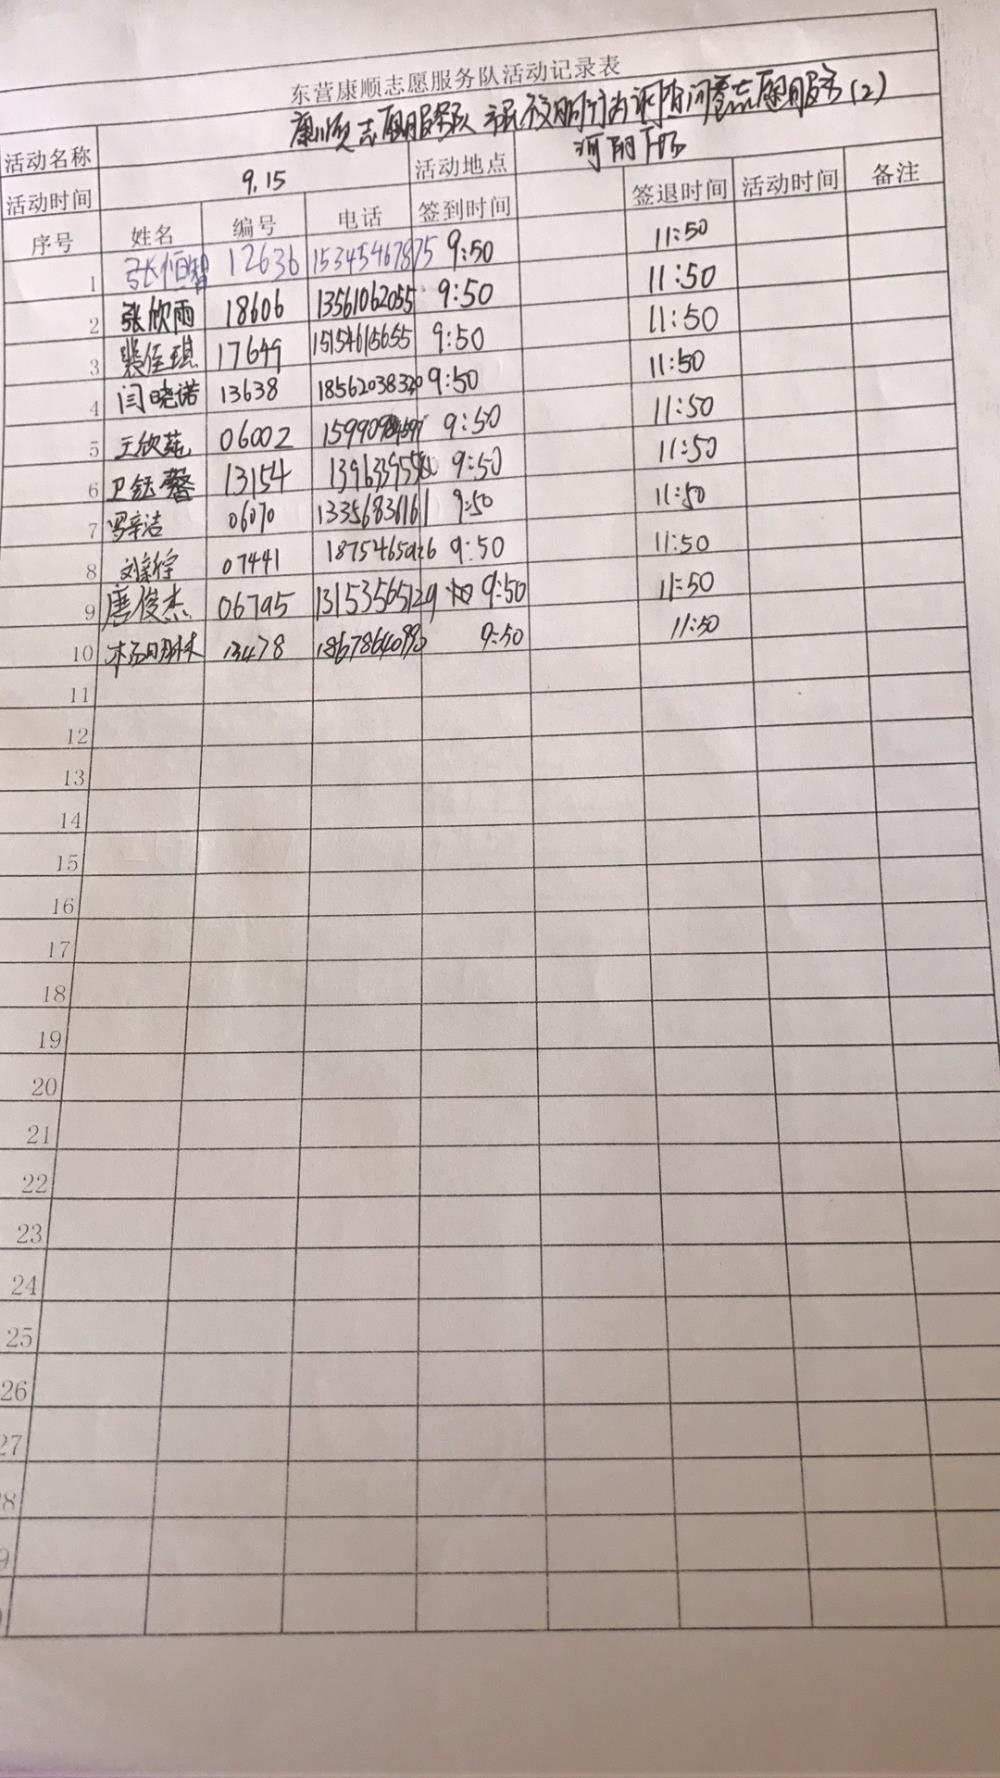 东营康顺志愿服务队活动记录表
活动名称 康顺志愿服务队 文明行为调查问卷志愿服务(2)
活动时间 9.15 活动地点 河阴
序号 姓名 编号 电话 签到时间 签退时间 活动时间 备注
1 张恒智 12636 15345467875 9:50 11:50
2 张欣雨 18606 13561062055 9:50 11:50
3 裴佳琪 17649 15154615655 9:50 11:50
4 闫晓诺 13638 18562038320 9:50 11:50
5 王欣苑 06002 9:50 11:50
6 卫钰馨 13154 9:50 11:50
7 罗辛洁 06070 9:50 11:50
8 刘新宇 07441 9:50 11:50
9 唐俊杰 06795 13153565129 9:50 11:50
10 13478 9:50 11:50
11
12
13
14
15
16
17
18
19
20
21
22
23
24
25
26
27
28
9